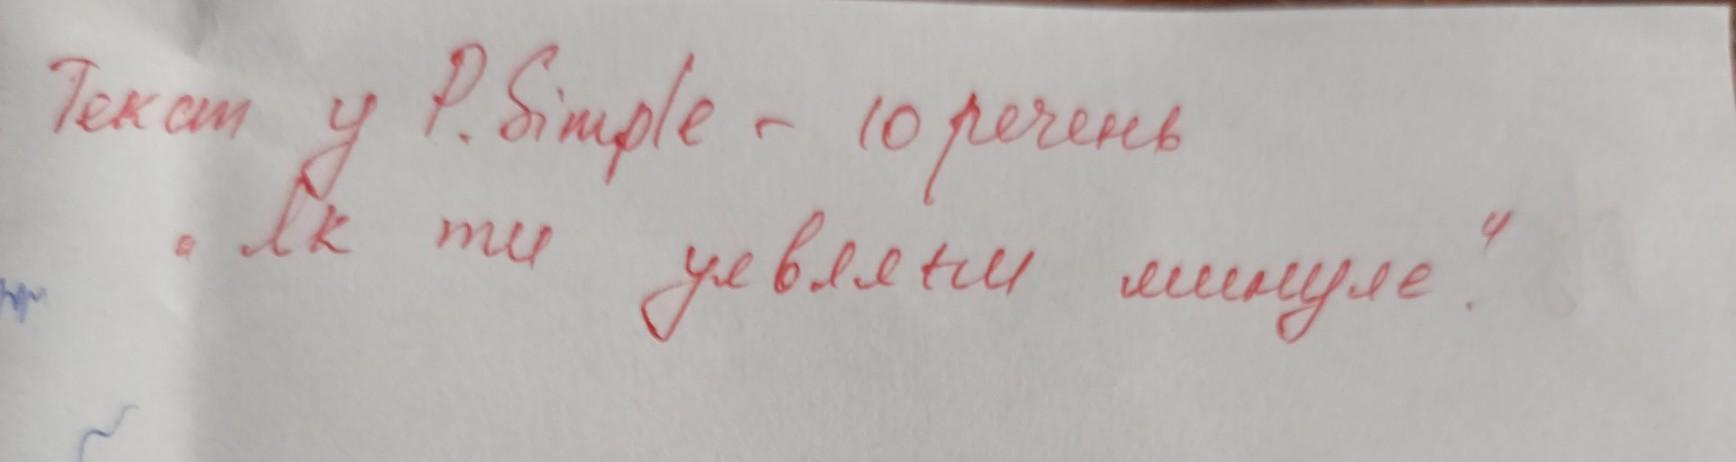 Текст у P. Simple - 10 речень
"Як ти уявляєш минуле."